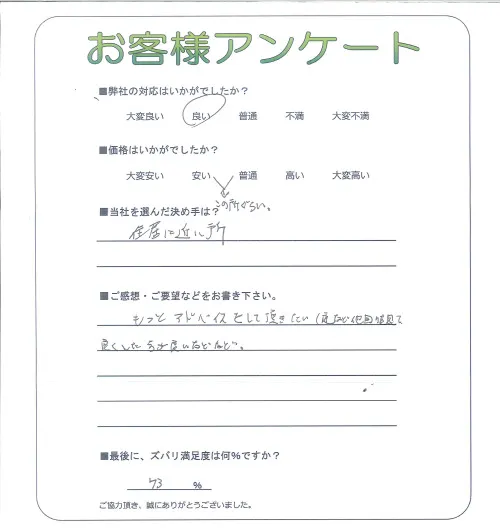 お客様アンケート
■弊社の対応はいかがでしたか？
大変良い 良い 普通 不満 大変不満
■価格はいかがでしたか？
大変安い 安い 普通 高い 大変高い
この所ぐらい。
■当社を選んだ決め手は？
住居に近い所
■ご感想・ご要望などをお書き下さい。
もっとアドバイスをして頂きたい（
良くした方が良いなどなど。
■最後に、ズバリ満足度は何％ですか？
93 ％
ご協力頂き、誠にありがとうございました。